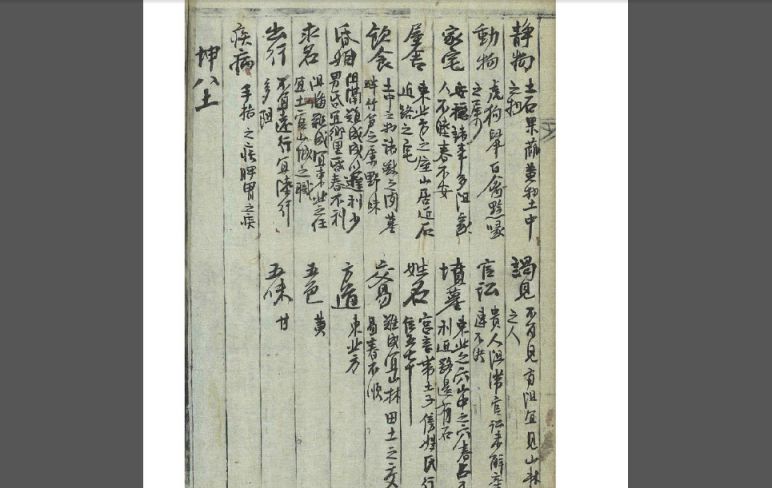 静物 土石果蓏黄物土中
之物
動物 虎狗鼠百禽黔喙
之属
家宅 安穩諸事多阻家
人不睦春不安
屋舍 東北方之室山居近石
近路之宅
飲食 土中之物諸獸之肉墓
畔竹笋之属野味
昏姻 阻滞難成成亦遲利少
男昏宜鄉里昏春不利
求名 阻隔難成宜東北之任
宜土官山城之職
出行 不宜遠行宜陸行
多阻
疾病 手指之疾脾胃之疾
坤八土
謁見 不可見有阻宜見山林
之人
官訟 貴人阻滞官訟未解牽
連不决
墳墓 東北之穴山中之穴春占不
利近路邊有石
姓名 宮音帶土字傍姓氏行
位五七十
交易 難成宜山林田土之交
易春不順
方道 東北方
五色 黄
五味 甘